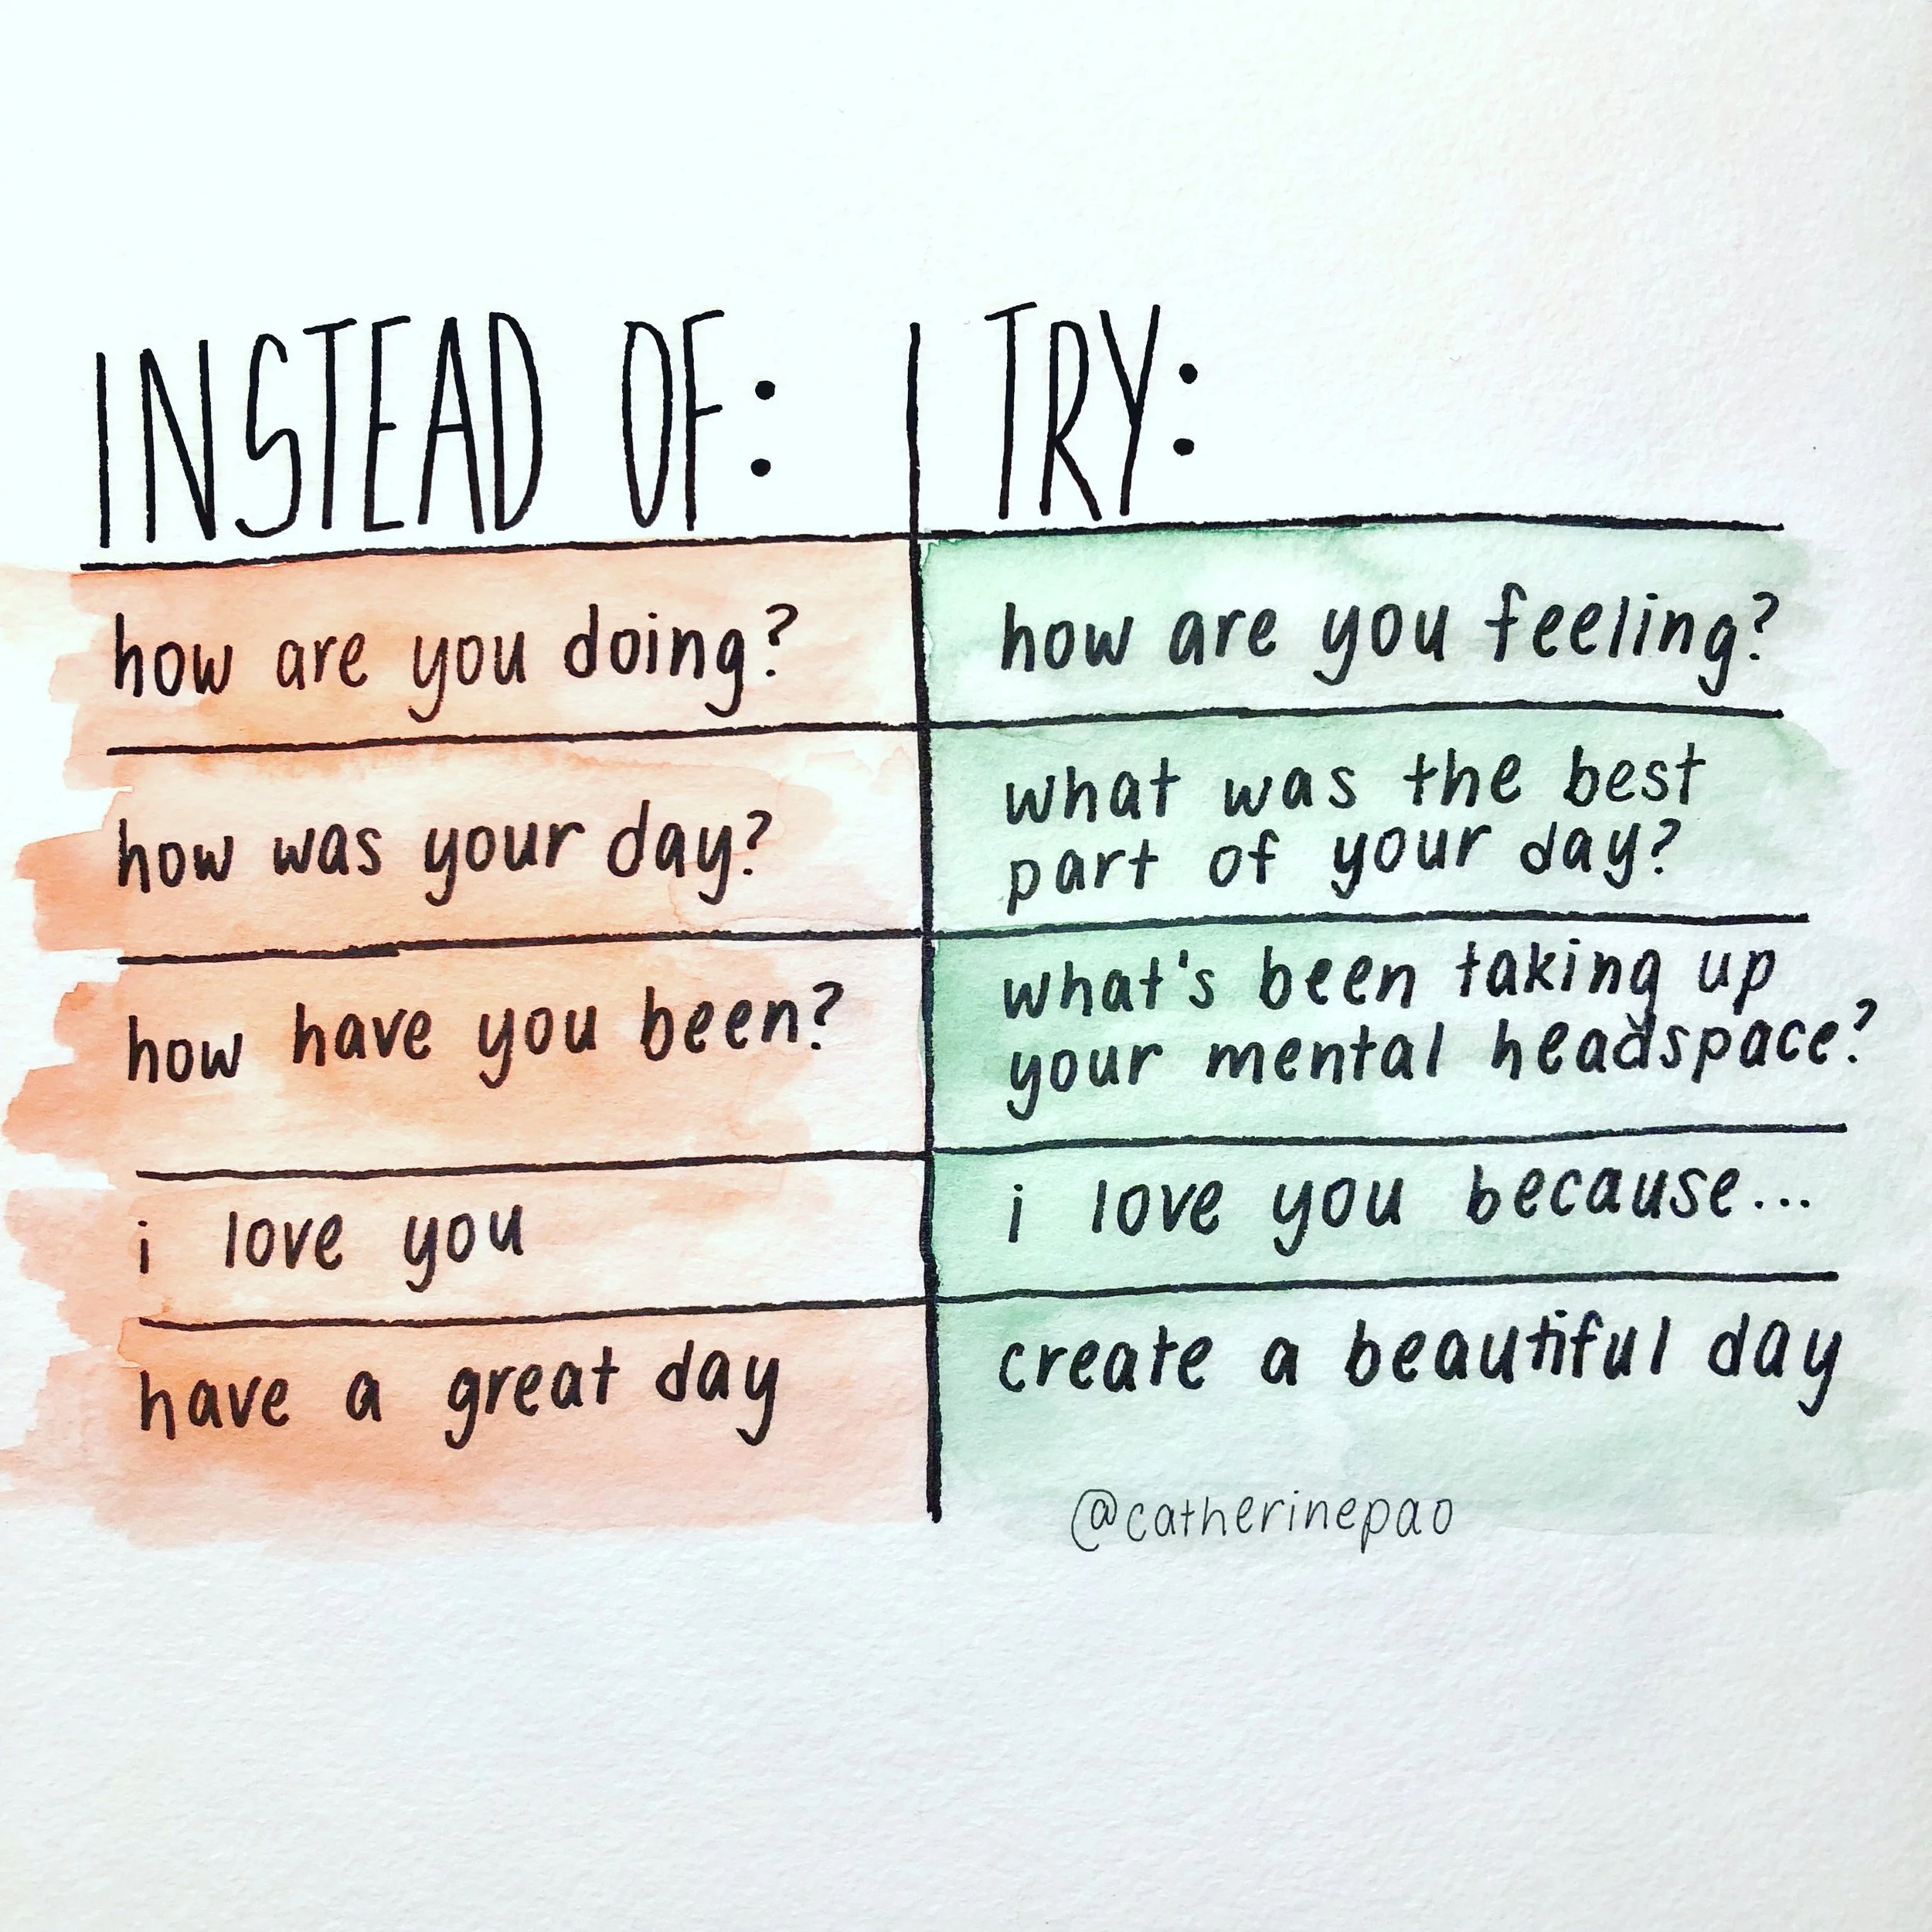 INSTEAD OF: TRY:
how are you doing? how are you feeling?
how was your day? what was the best
part of your day?
how have you been? what's been taking up
your mental headspace?
i love you i love you because...
have a great day create a beautiful day
@catherinepao